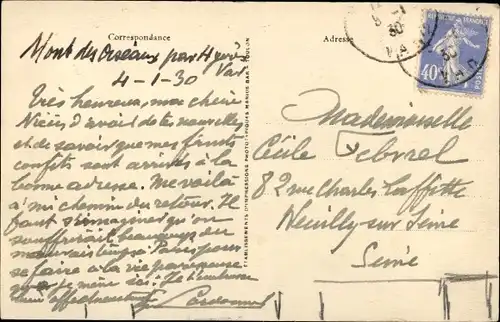 Correspondance
Adresse
Mont des Oiseaux par Hyères
Var
4-1-30
Très heureux, ma chère
Nièce d'avoir de tes nouvelles
et de savoir que mes fruits
confits sont arrivés à la
bonne adresse. Me voilà
à mi chemin du retour. Il
faut s'imaginer qu'on
souffrirait beaucoup du
mauvais temps. Paris pour
se faire à la vie parisienne
même ici. Je t'embrasse
bien affectueusement
Mademoiselle
Cécile
82 rue Charles Laffitte
Neuilly-sur-Seine
Seine
ETABLISSEMENTS D'IMPRESSIONS PHOTOTYPIQUES MARIUS BAR - TOULON
40
POSTES